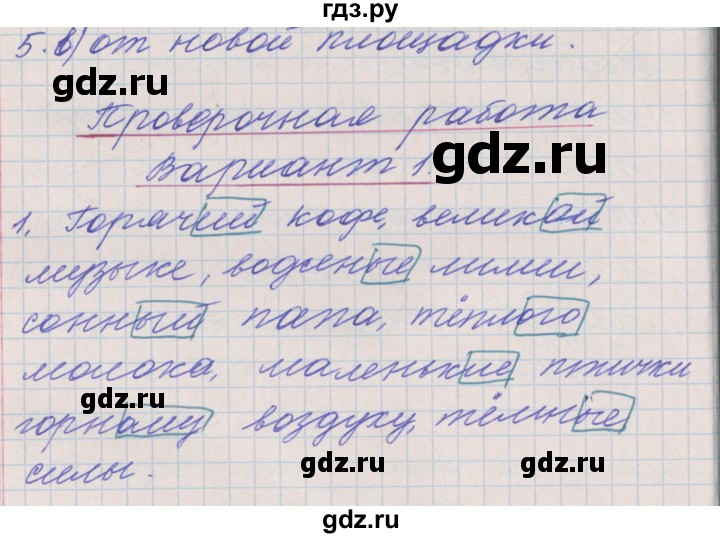 гдз.ру
5. в) от новой площадки.
gdz.ru
Проверочная работа
gdz.ru
Вариант 1.
1. Горячий кофе, великой
gdz.ru
музыке, водяные лилии,
gdz.ru
сонный папа, тёплого
gdz.ru
молока, маленькие птички
gdz.ru
горному воздуху, тёмные
силы.
gdz.ru
gdz.ru
gdz.ru